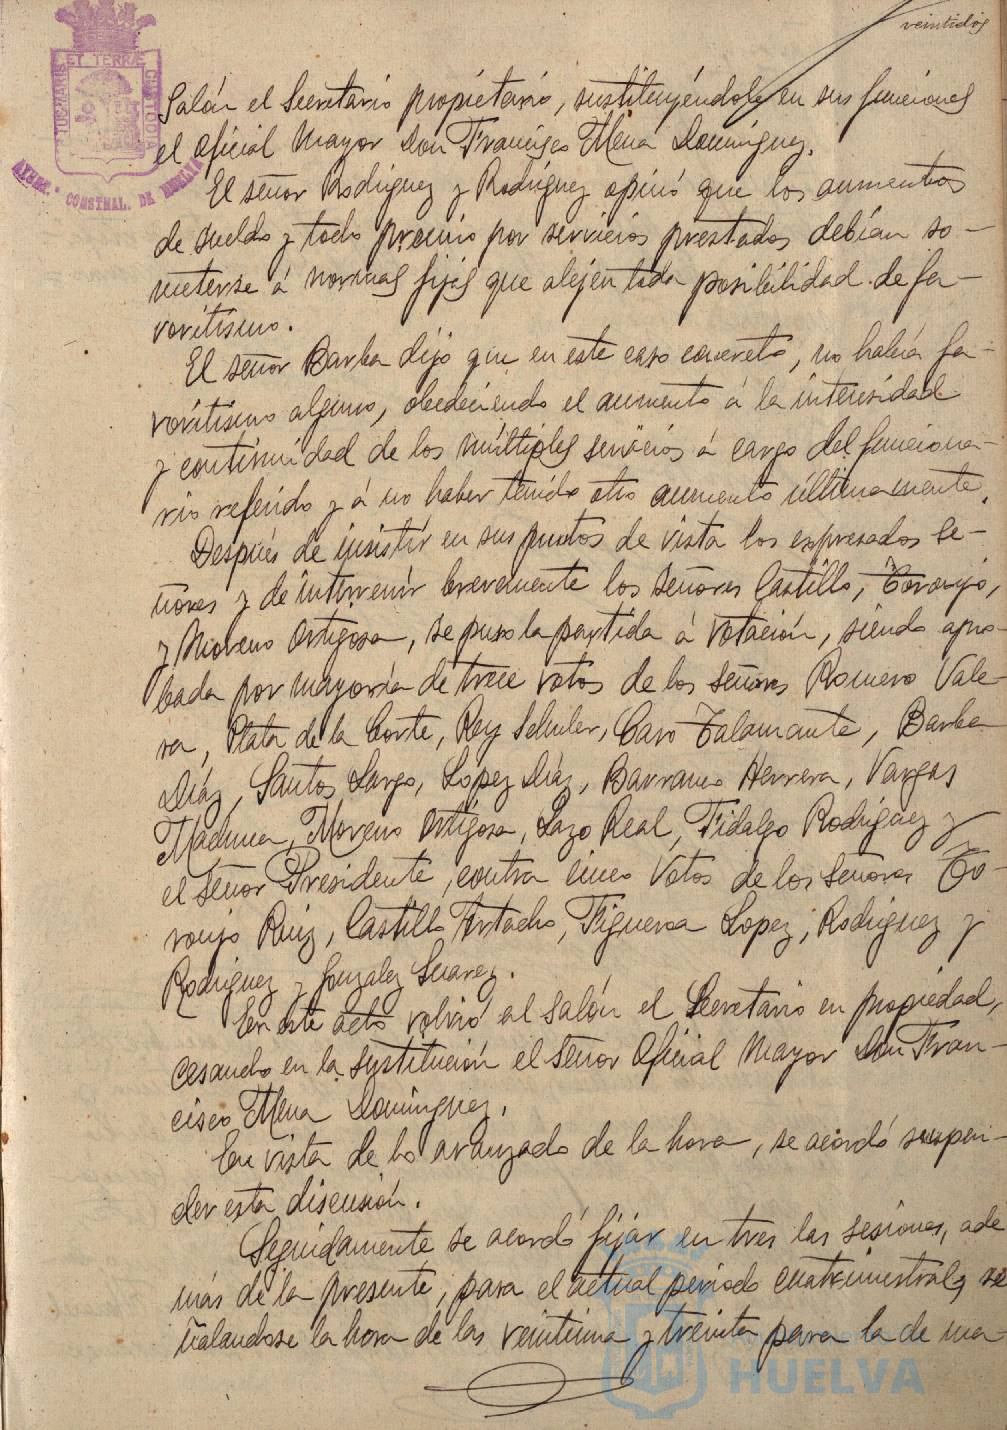 veintidós
PORTUS MARIS ET TERRÆ CUSTODIA
AYUNT. CONSTNAL. DE HUELVA
Salón el Secretario propietario, sustituyéndole en sus funciones
el oficial Mayor Don Francisco Mena Domínguez.
El señor Rodríguez y Rodríguez opinó que los aumentos
de sueldo y todo premio por servicios prestados debían so-
meterse á normas fijas que alejen toda posibilidad de fa-
voritismo.
El señor Barba dijo que en este caso concreto, no había fa-
voritismo alguno, obedeciendo el aumento á la intensidad
y continuidad de los múltiples servicios á cargo del funciona-
rio referido y á no haber tenido otro aumento últimamente.
Después de insistir en sus puntos de vista los expresados se-
ñores y de intervenir brevemente los señores Castillo, Toronjo,
y Moreno Ortigosa, se puso la partida á votación, siendo apro-
bada por mayoría de trece votos de los señores Romero Vale-
ra, Plata de la Corte, Rey Schuler, Caro Talamante, Barba
Díaz, Santos Largo, López Díaz, Barranco Herrera, Vargas
Moreno Ortigosa, Lazo Real, Fidalgo Rodríguez y
el señor Presidente, contra cinco votos de los señores To-
ronjo Ruiz, Castillo Artacho, Figueroa Lopez, Rodríguez y
Rodríguez y Gonzalez Suarez.
En este acto volvió al salón el Secretario en propiedad,
cesando en la sustitución el señor Oficial Mayor Don Fran-
cisco Mena Domínguez.
En vista de lo avanzado de la hora, se acordó suspen-
der esta discusión.
Seguidamente se acordó fijar en tres las sesiones, ade
más de la presente, para el actual período cuatrimestral, se
ñalandose la hora de las veintiuna y treinta para la de ma-
HUELVA